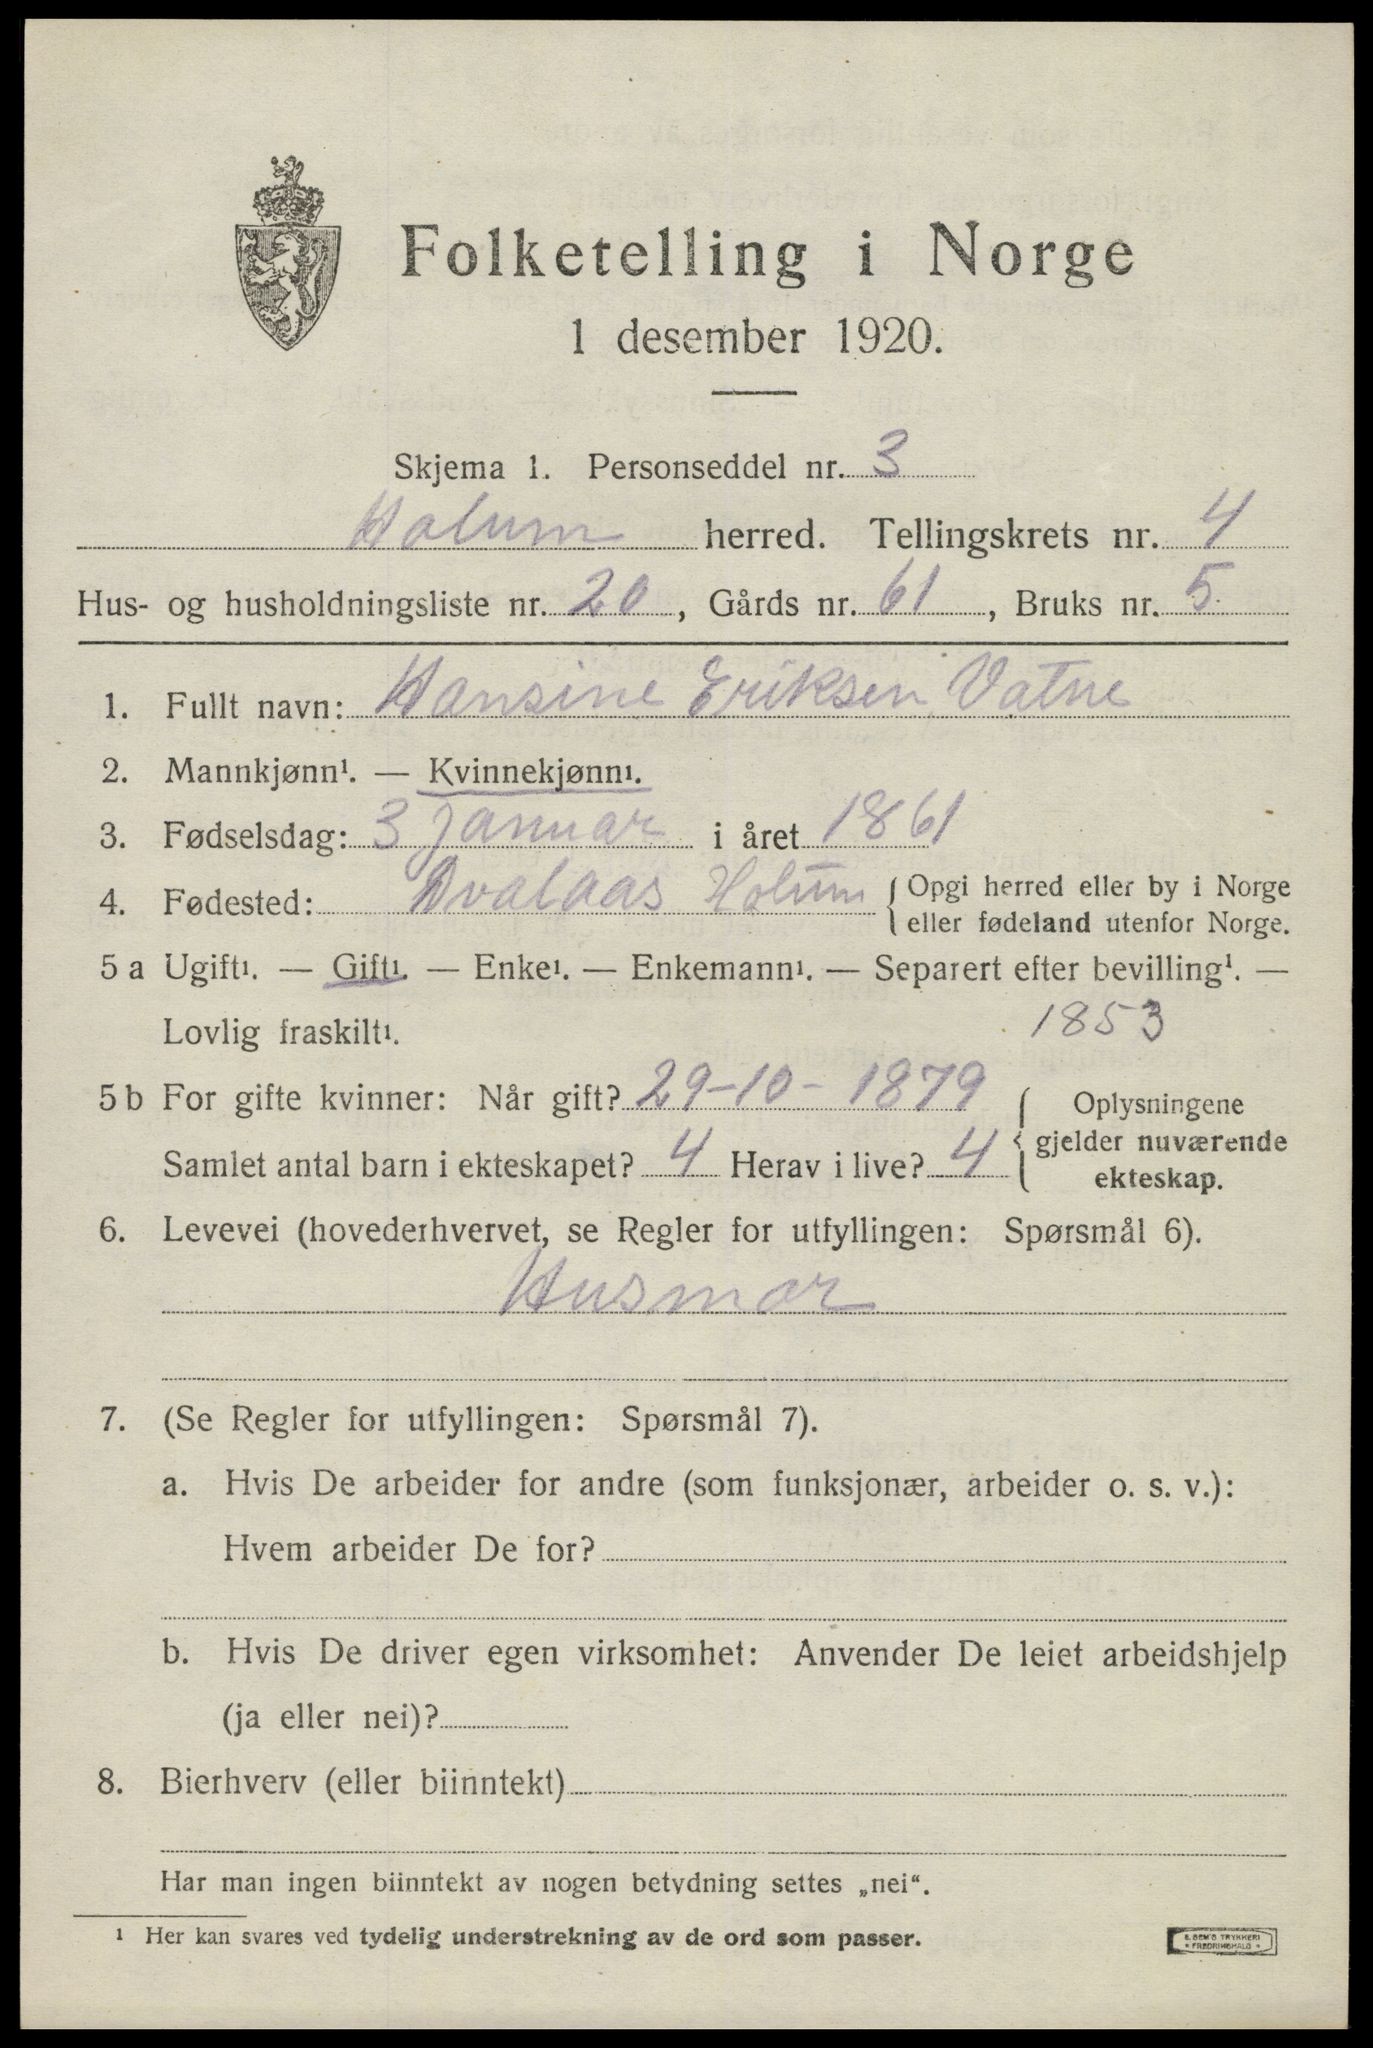 Folketelling i Norge
1 desember 1920.
Skjema 1. Personseddel nr. 3
Holum herred. Tellingskrets nr. 4
Hus- og husholdningsliste nr. 20, Gårds nr. 61, Bruks nr. 5
1. Fullt navn: Hansine Eriksen Vatne
2. Mannkjønn¹. — Kvinnekjønn¹.
3. Fødselsdag: 3 januar i året 1861
4. Fødested: Dvalaas Holum { Opgi herred eller by i Norge
eller fødeland utenfor Norge.
5 a Ugift¹. — Gift¹. — Enke¹. — Enkemann¹. — Separert efter bevilling¹. —
Lovlig fraskilt¹. 1853
5 b For gifte kvinner: Når gift? 29-10-1879 { Oplysningene
gjelder nuværende
ekteskap.
Samlet antal barn i ekteskapet? 4 Herav i live? 4
6. Levevei (hovederhvervet, se Regler for utfyllingen: Spørsmål 6).
Husmor
7. (Se Regler for utfyllingen: Spørsmål 7).
a. Hvis De arbeider for andre (som funksjonær, arbeider o. s. v.):
Hvem arbeider De for?
b. Hvis De driver egen virksomhet: Anvender De leiet arbeidshjelp
(ja eller nei)?
8. Bierhverv (eller biinntekt)
Har man ingen biinntekt av nogen betydning settes „nei“.
¹ Her kan svares ved tydelig understrekning av de ord som passer.
E. SEM'S TRYKKERI
* FREDRIKSHALD *